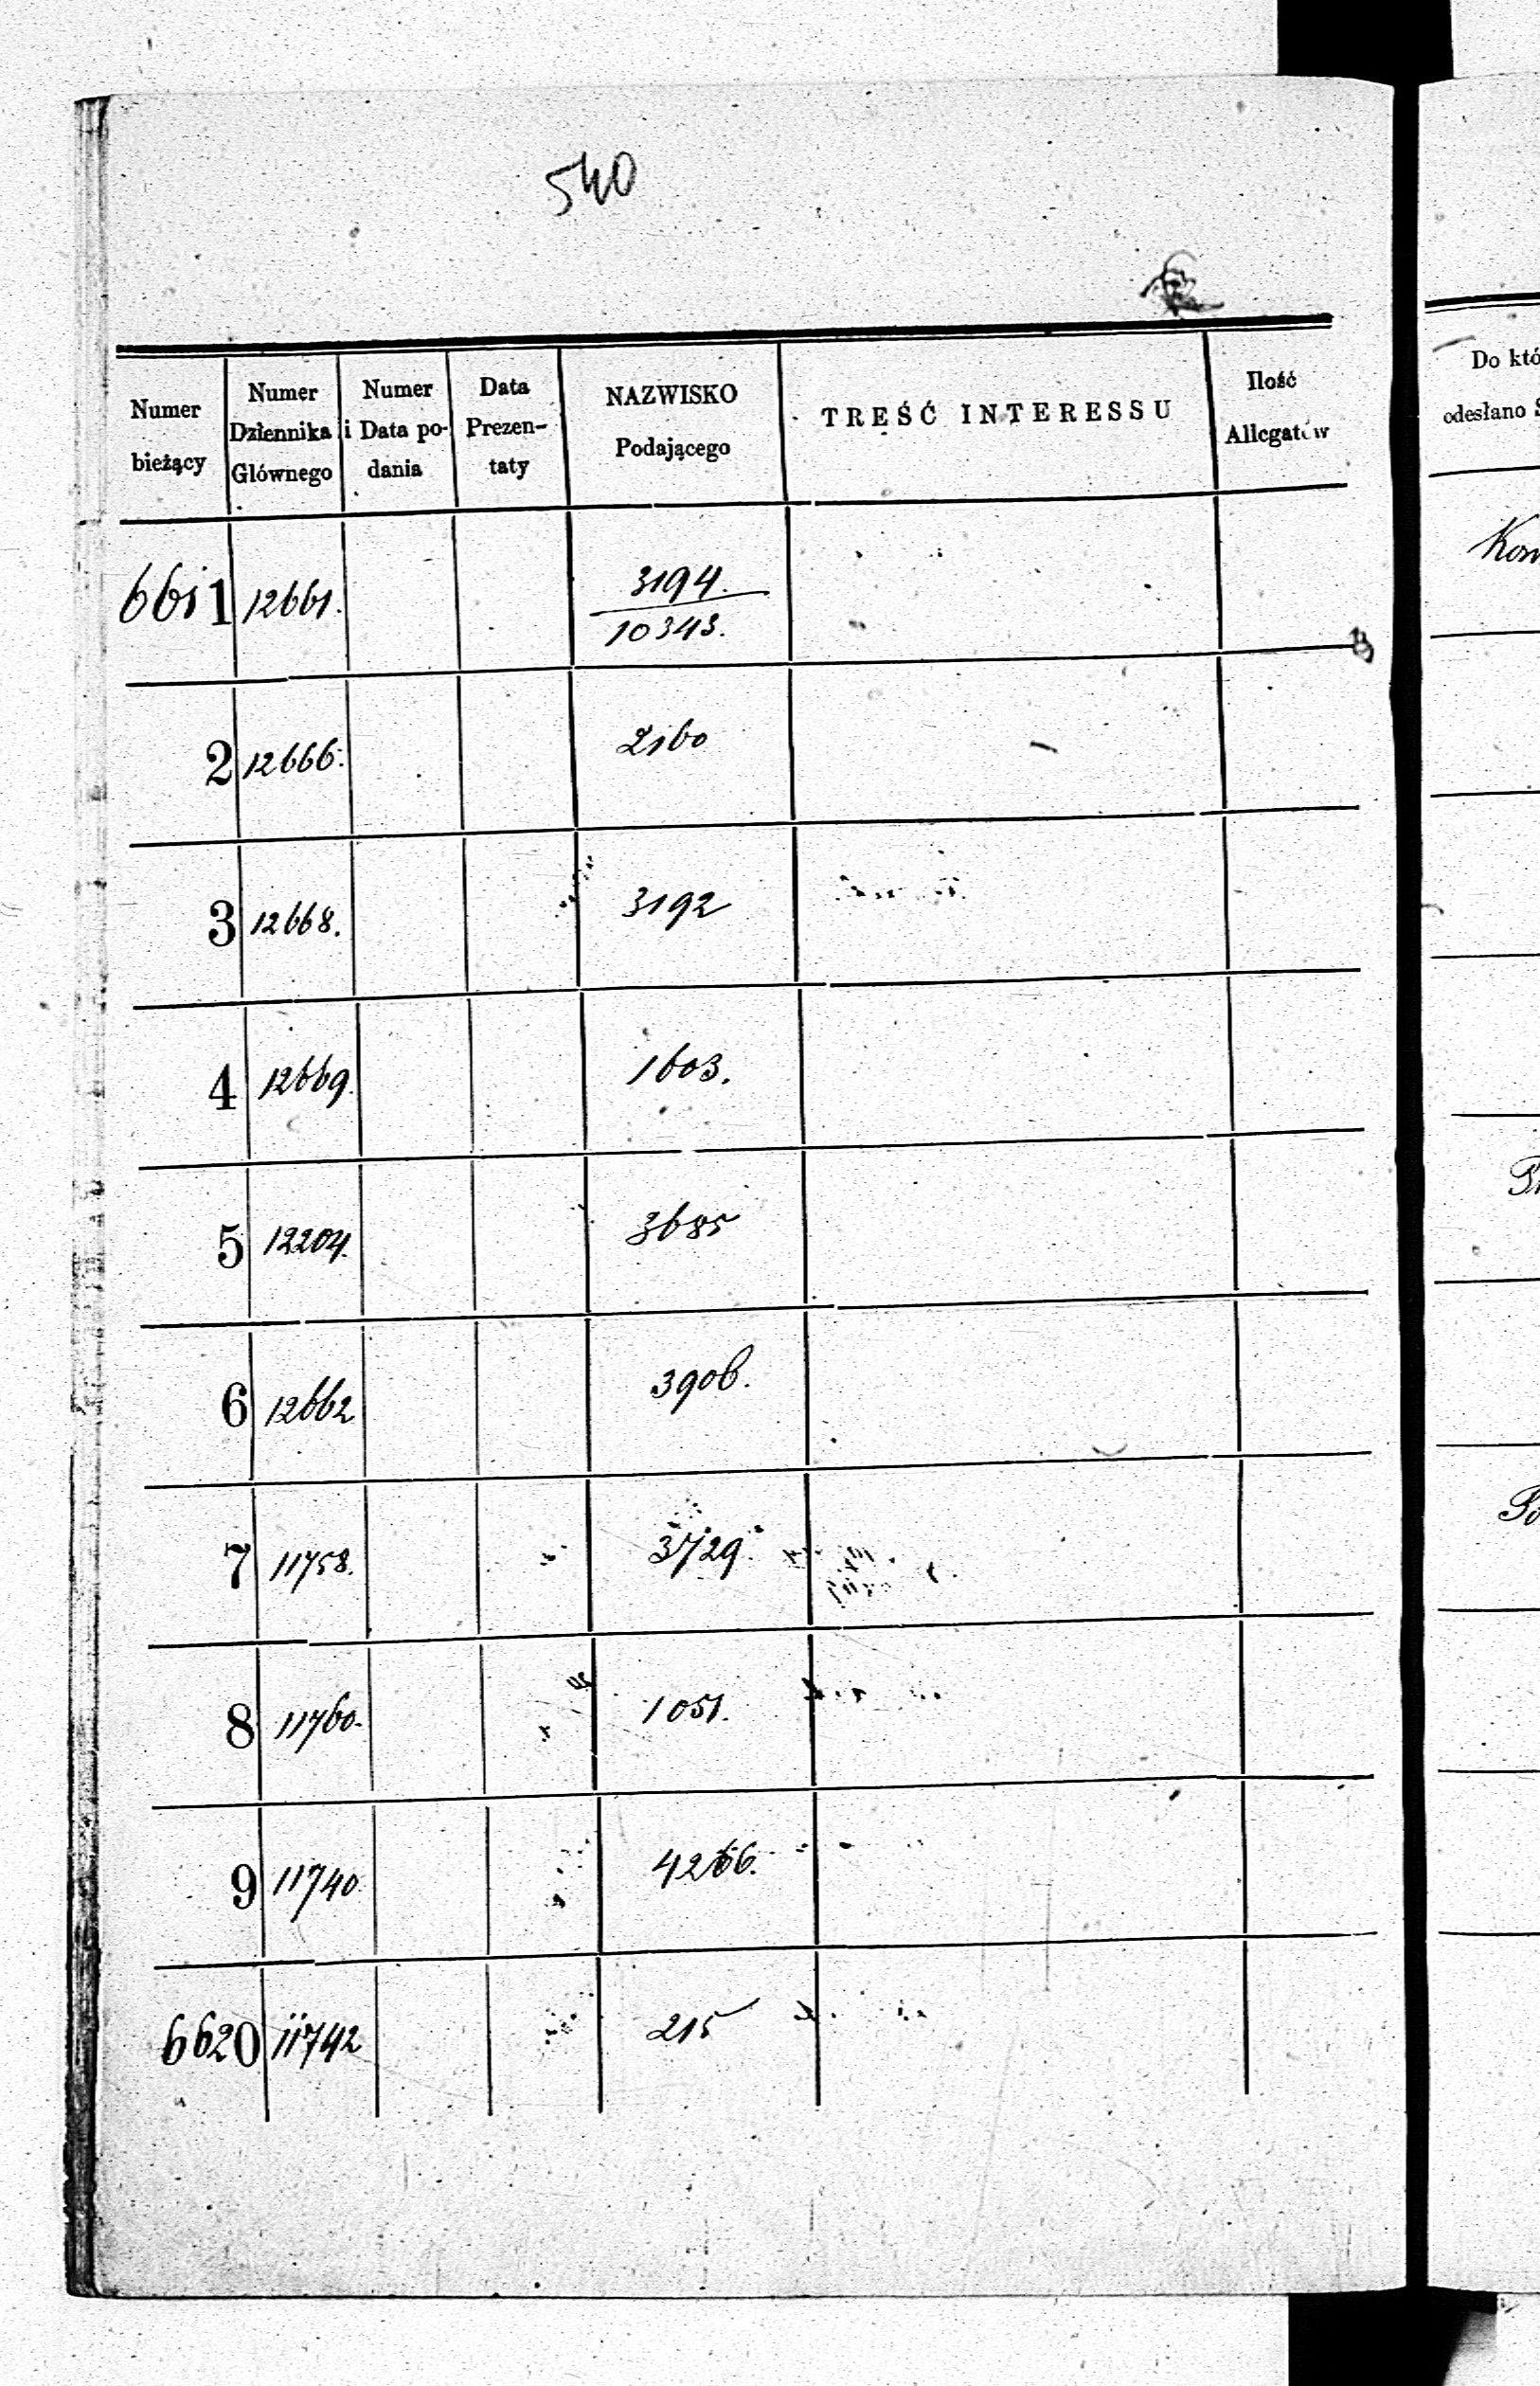 540
Numer bieżący | Numer Dziennika Głównego | Numer i Data podania | Data Prezen-taty | NAZWISKO Podającego | TREŚĆ INTERESSU | Ilość Allegatów
6611 | 12661. | 3194. / 10343.
2 | 12666. | 2160
3 | 12668. | 3192
4 | 12669. | 1603.
5 | 12204. | 3685
6 | 12662 | 3906.
7 | 11758. | 3729.
8 | 11760. | 1051.
9 | 11740 | 4266.
6620 | 11742 | 215
Do któ
odesłano S
Kom